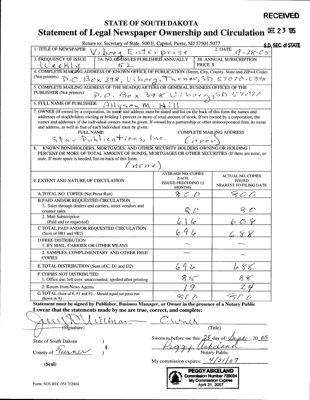 RECEIVED
STATE OF SOUTH DAKOTA
Statement of Legal Newspaper Ownership and Circulation
DEC 23 '05
Return to: Secretary of State, 500 E. Capitol, Pierre, SD 57501-5077
S.D. SEC. of STATE
1. TITLE OF NEWSPAPER
Viborg Enterprise
2. DATE
9-28-05
3. FREQUENCY OF ISSUE
Weekly
3A. NO. OF ISSUES PUBLISHED ANNUALLY
52
3B. ANNUAL SUBSCRIPTION PRICE $
4. COMPLETE MAILING ADDRESS OF KNOWN OFFICE OF PUBLICATION (Street, City, County, State and ZIP+4 Code) (Not printers)
P.O. Box 398, Viborg, Turner, SD 57070-0398
5. COMPLETE MAILING ADDRESS OF THE HEADQUARTERS OR GENERAL BUSINESS OFFICES OF THE PUBLISHER (Not printers)
P.O. Box 398 Viborg, SD 57070
6. FULL NAME OF PUBLISHER:
Allyson M. Hill
7. OWNER (If owned by a corporation, its name and address must be stated and list on the back of this form the names and
addresses of stockholders owning or holding 1 percent or more of total amount of stock. If not owned by a corporation, the
names and addresses of the individual owners must be given. If owned by a partnership or other unincorporated firm, its name
and address, as well as that of each individual must be given.
FULL NAME
COMPLETE MAILING ADDRESS
Star Publications, Inc.
8. KNOWN BONDHOLDERS, MORTGAGES, AND OTHER SECURITY HOLDERS OWNING OR HOLDING 1
PERCENT OR MORE OF TOTAL AMOUNT OF BONDS, MORTGAGES OR OTHER SECURITIES (If there are none, so
state. If more space is needed, list on back of this form.
(none)
9. EXTENT AND NATURE OF CIRCULATION
AVERAGE NO. COPIES EACH ISSUED PRECEDING 12 MONTHS
ACTUAL NO. COPIES ISSUED NEAREST TO FILING DATE
A. TOTAL NO. COPIES (Net Press Run)
800
800
B. PAID AND/OR REQUESTED CIRCULATION
1. Sales through dealers and carriers, street vendors and counter sales.
80
80
2. Mail Subscription
(Paid and or requested)
616
608
C. TOTAL PAID AND/OR REQUESTED CIRCULATION
(Sum of 9B1 and 9B2)
696
688
D. FREE DISTRIBUTION
1. BY MAIL, CARRIER OR OTHER MEANS
2. SAMPLES, COMPLIMENTARY AND OTHER FREE COPIES
E. TOTAL DISTRIBUTION (Sum of C, D1 and D2)
696
688
F. COPIES NOT DISTRIBUTED
1. Office use, left over, unaccounted, spoiled after printing
85
88
2. Return from News Agents
19
24
G. TOTAL (Sum of E, F1 and F2 - Should equal net press run shown in A)
800
800
Statement must be signed by Publisher, Business Manager, or Owner in the presence of a Notary Public
I swear that the statements made by me are true, correct, and complete:
Owner
(Signature)
(Title)
State of South Dakota )
County of Turner )
Sworn to before me this 28 day of Sept, 20 05
Peggy Askeland
Notary Public
(Seal)
My commission expires: 4/21/07
PEGGY ASKELAND
My Commission Expires
April 21, 2007
Form: SOS REC 051 7/2004